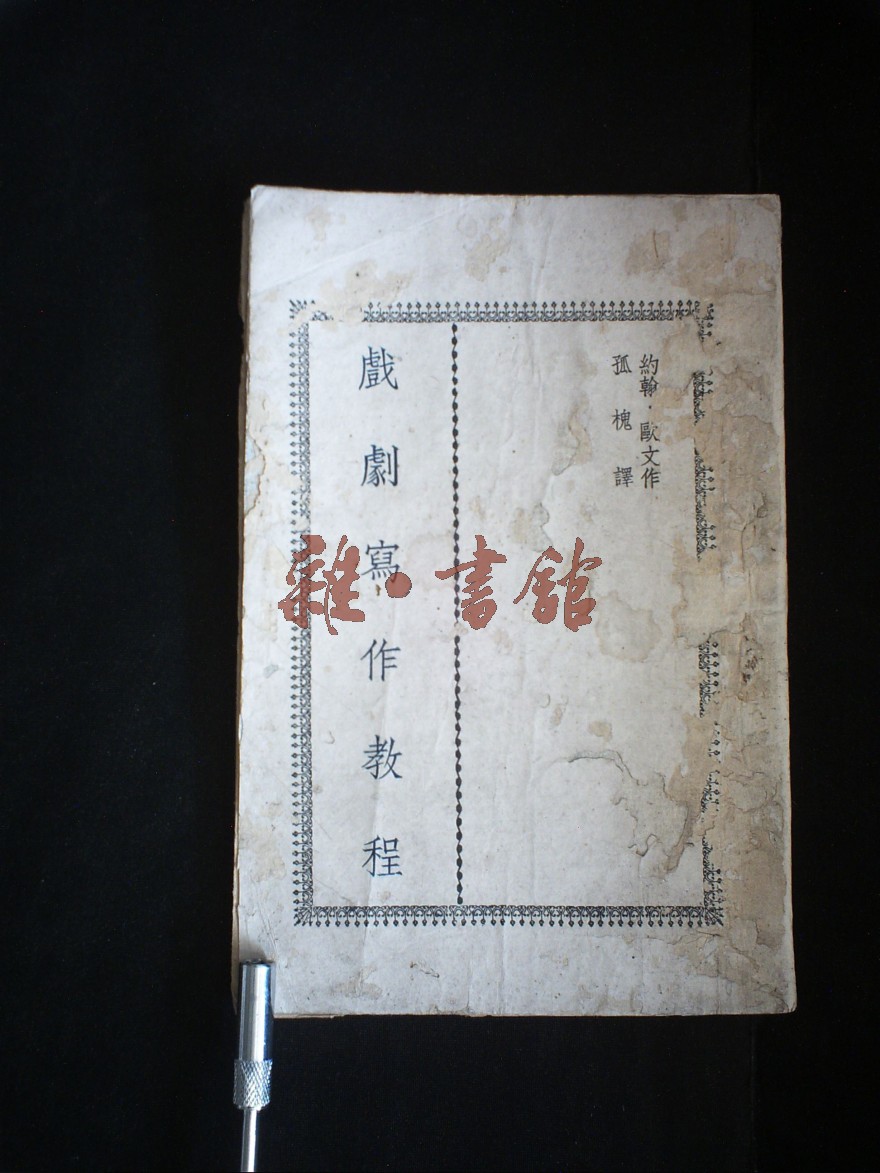 約翰·歐文作
孤槐譯
戲劇寫作教程
雜·書館